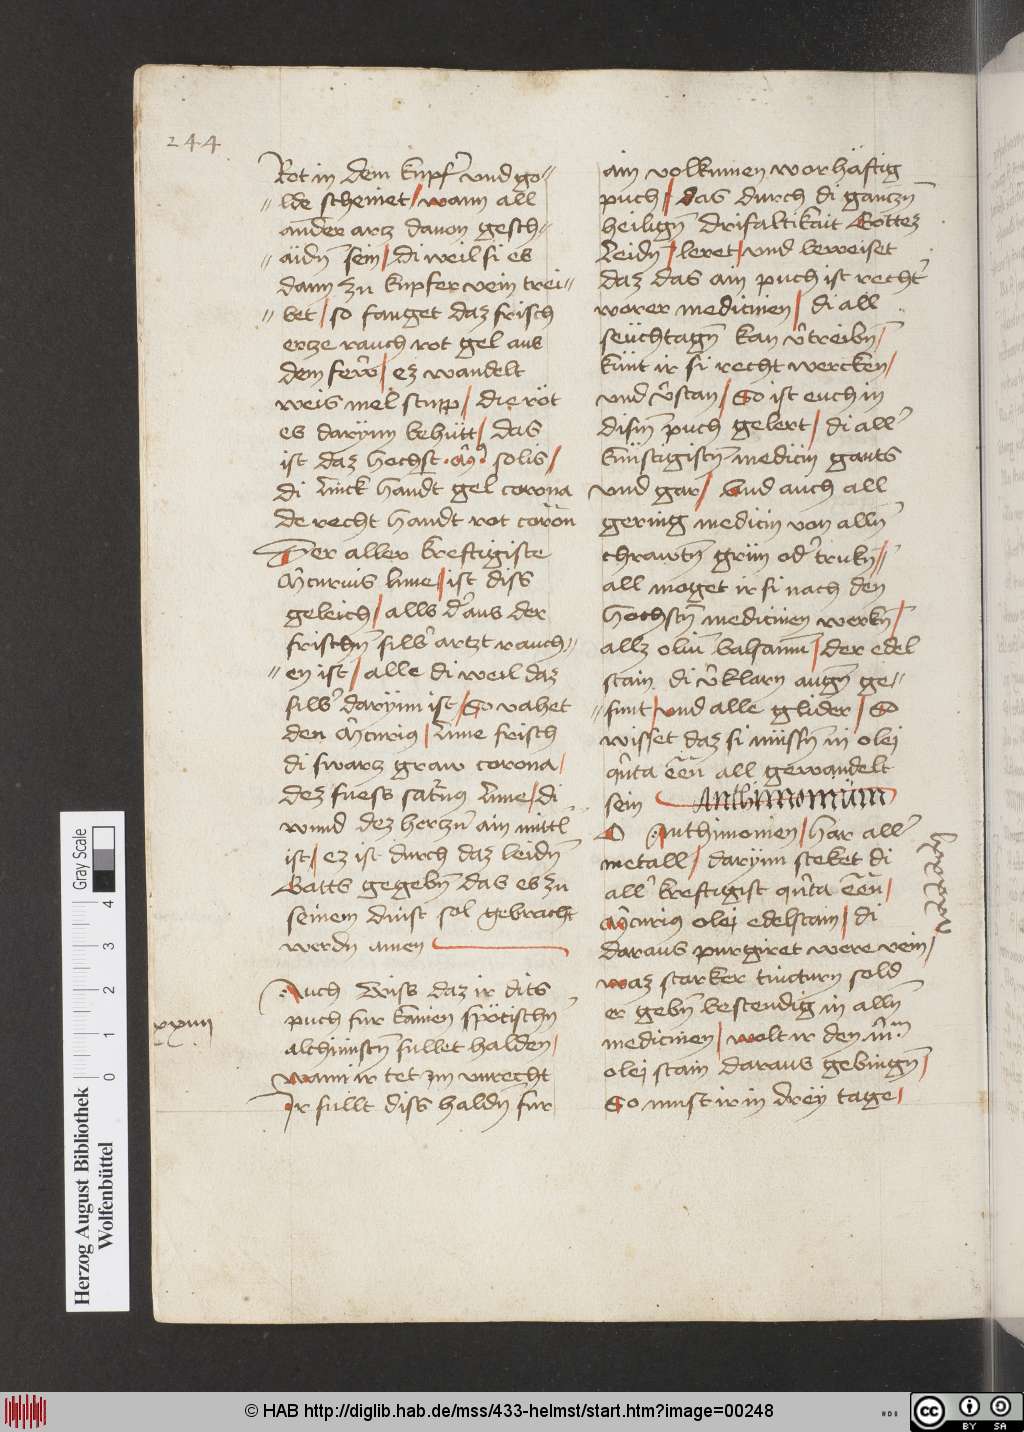 244
Rot in dem kupfer̉ vnd go⸗
⸗lde scheinet / wann all
ander artz dauon gesch⸗
⸗aidn̄ sein / di weil si es
dann zu kupfer vein trei⸗
⸗bet / so fanget daz frisch
ertze rauch rot gel aus
dem fewr̉ / ez wandelt
weis mel stupp / die röt
es darÿnn behütt / das
ist daz hochst solis /
di linck handt gel corona
de recht handt rot coron̄
Der aller kreftigiste
Mercurius lune / ist diss
geleich / alls d' aus der
frischn̄ silb' artzt rauch⸗
⸗en ist / alle di weil daz
silb' darÿnn ist / So vahet
den Mercurius / lune frisch
di swartz graw corona /
dez fuess saturnus lune / di
wund dez hertzn̄ ain mittl
ist / ez ist durch daz leidn̄
Gotts gegebn̄ das es zu
seinem dinst sol gebracht
werdn amen
xxiiii
Auch Wiss daz ir dits
puch fur kainen spötischn̄
alchimistn̄ sullet halden /
wann ir tet zm vnrecht
Ir sullt diss haldn̄ fur
ain volkumen worhäftig
puch / das durch di gantzn̄
heilign̄ drifaltikait Gottez
leidn̄ / leret / vnd beweiset
daz das ain puch ist recht'
worer medicinen / di all
seüchtagn̄ kan v'treibn̄ /
künt ir si recht wercken /
vnd v'stan / So ist euch in
dism̄ puch gelert / di all'
künstigistn̄ medicin gants
vnd gar / Vnd auch all
gering medicin von alln̄
chrawtn̄ grün od' trukn̄ /
all moget ir si nach den
hochstn̄ medicinen werkn̄ /
allz oliū balsamum / der edel
stain di v'klarn augn̄ ge⸗
⸗sunt / vnd alle glider / So
wisset daz si müssn̄ in olei
qūta ēēn̄ all gewandelt
sein Anthimonium
O Anthimonien / har all'
metall / darÿnn steket di
all' kreftigist qūta ēēn̄ /
Mercurius olei edelstain / di
daraus purgiret were vein /
waz starker tincturn sold
er gebn̄ bestendig in alln̄
medicinen / wolt ir den
olei stain daraus gebingn̄ /
So must ir in dreÿ tage /
Herzog August Bibliothek
Wolfenbüttel
0 1 2 3 4
Gray Scale
© HAB http://diglib.hab.de/mss/433-helmst/start.htm?image=00248
cc BY SA